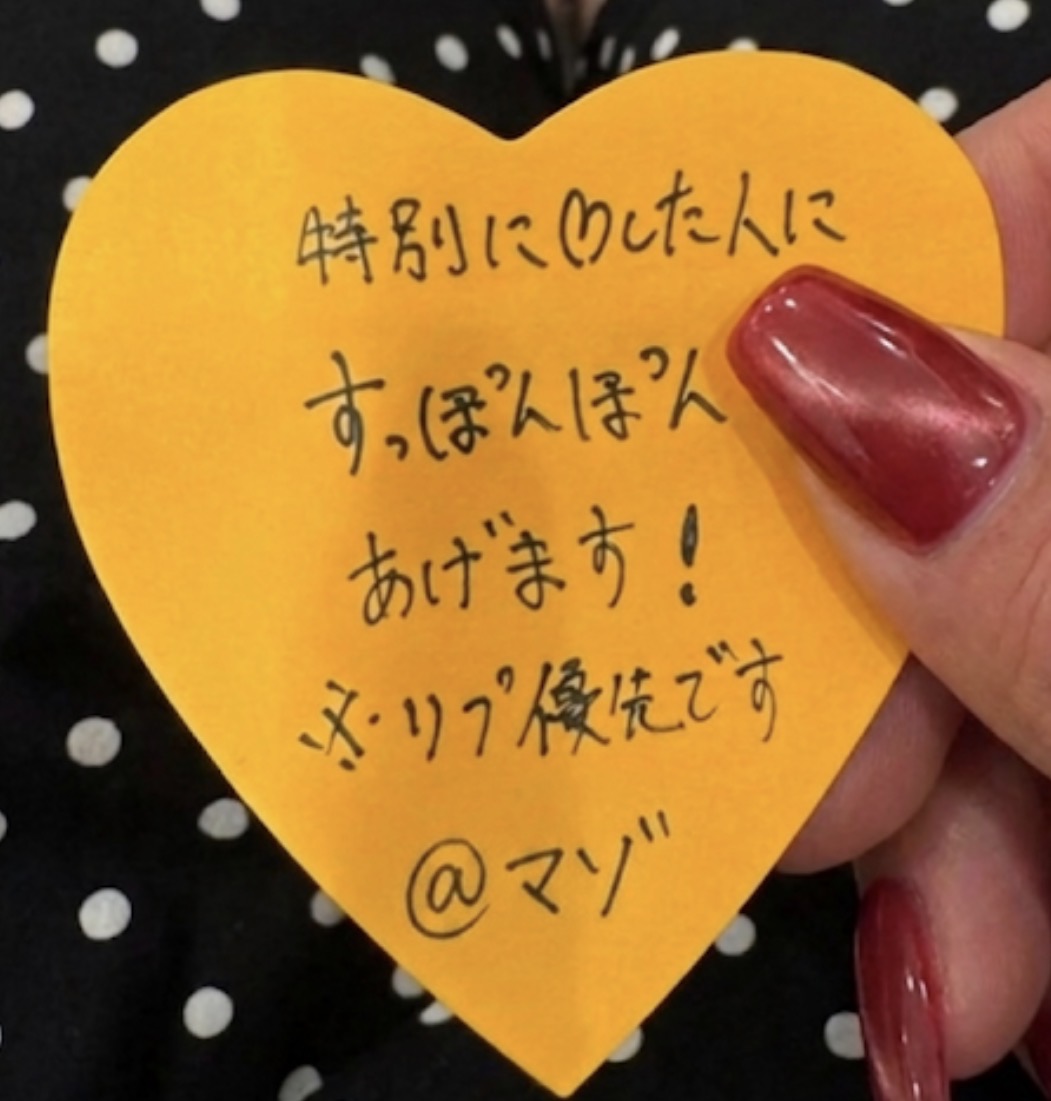 特別に♡した人に
すっぽんぽん
あげます!
※・リプ優先です
@マゾ